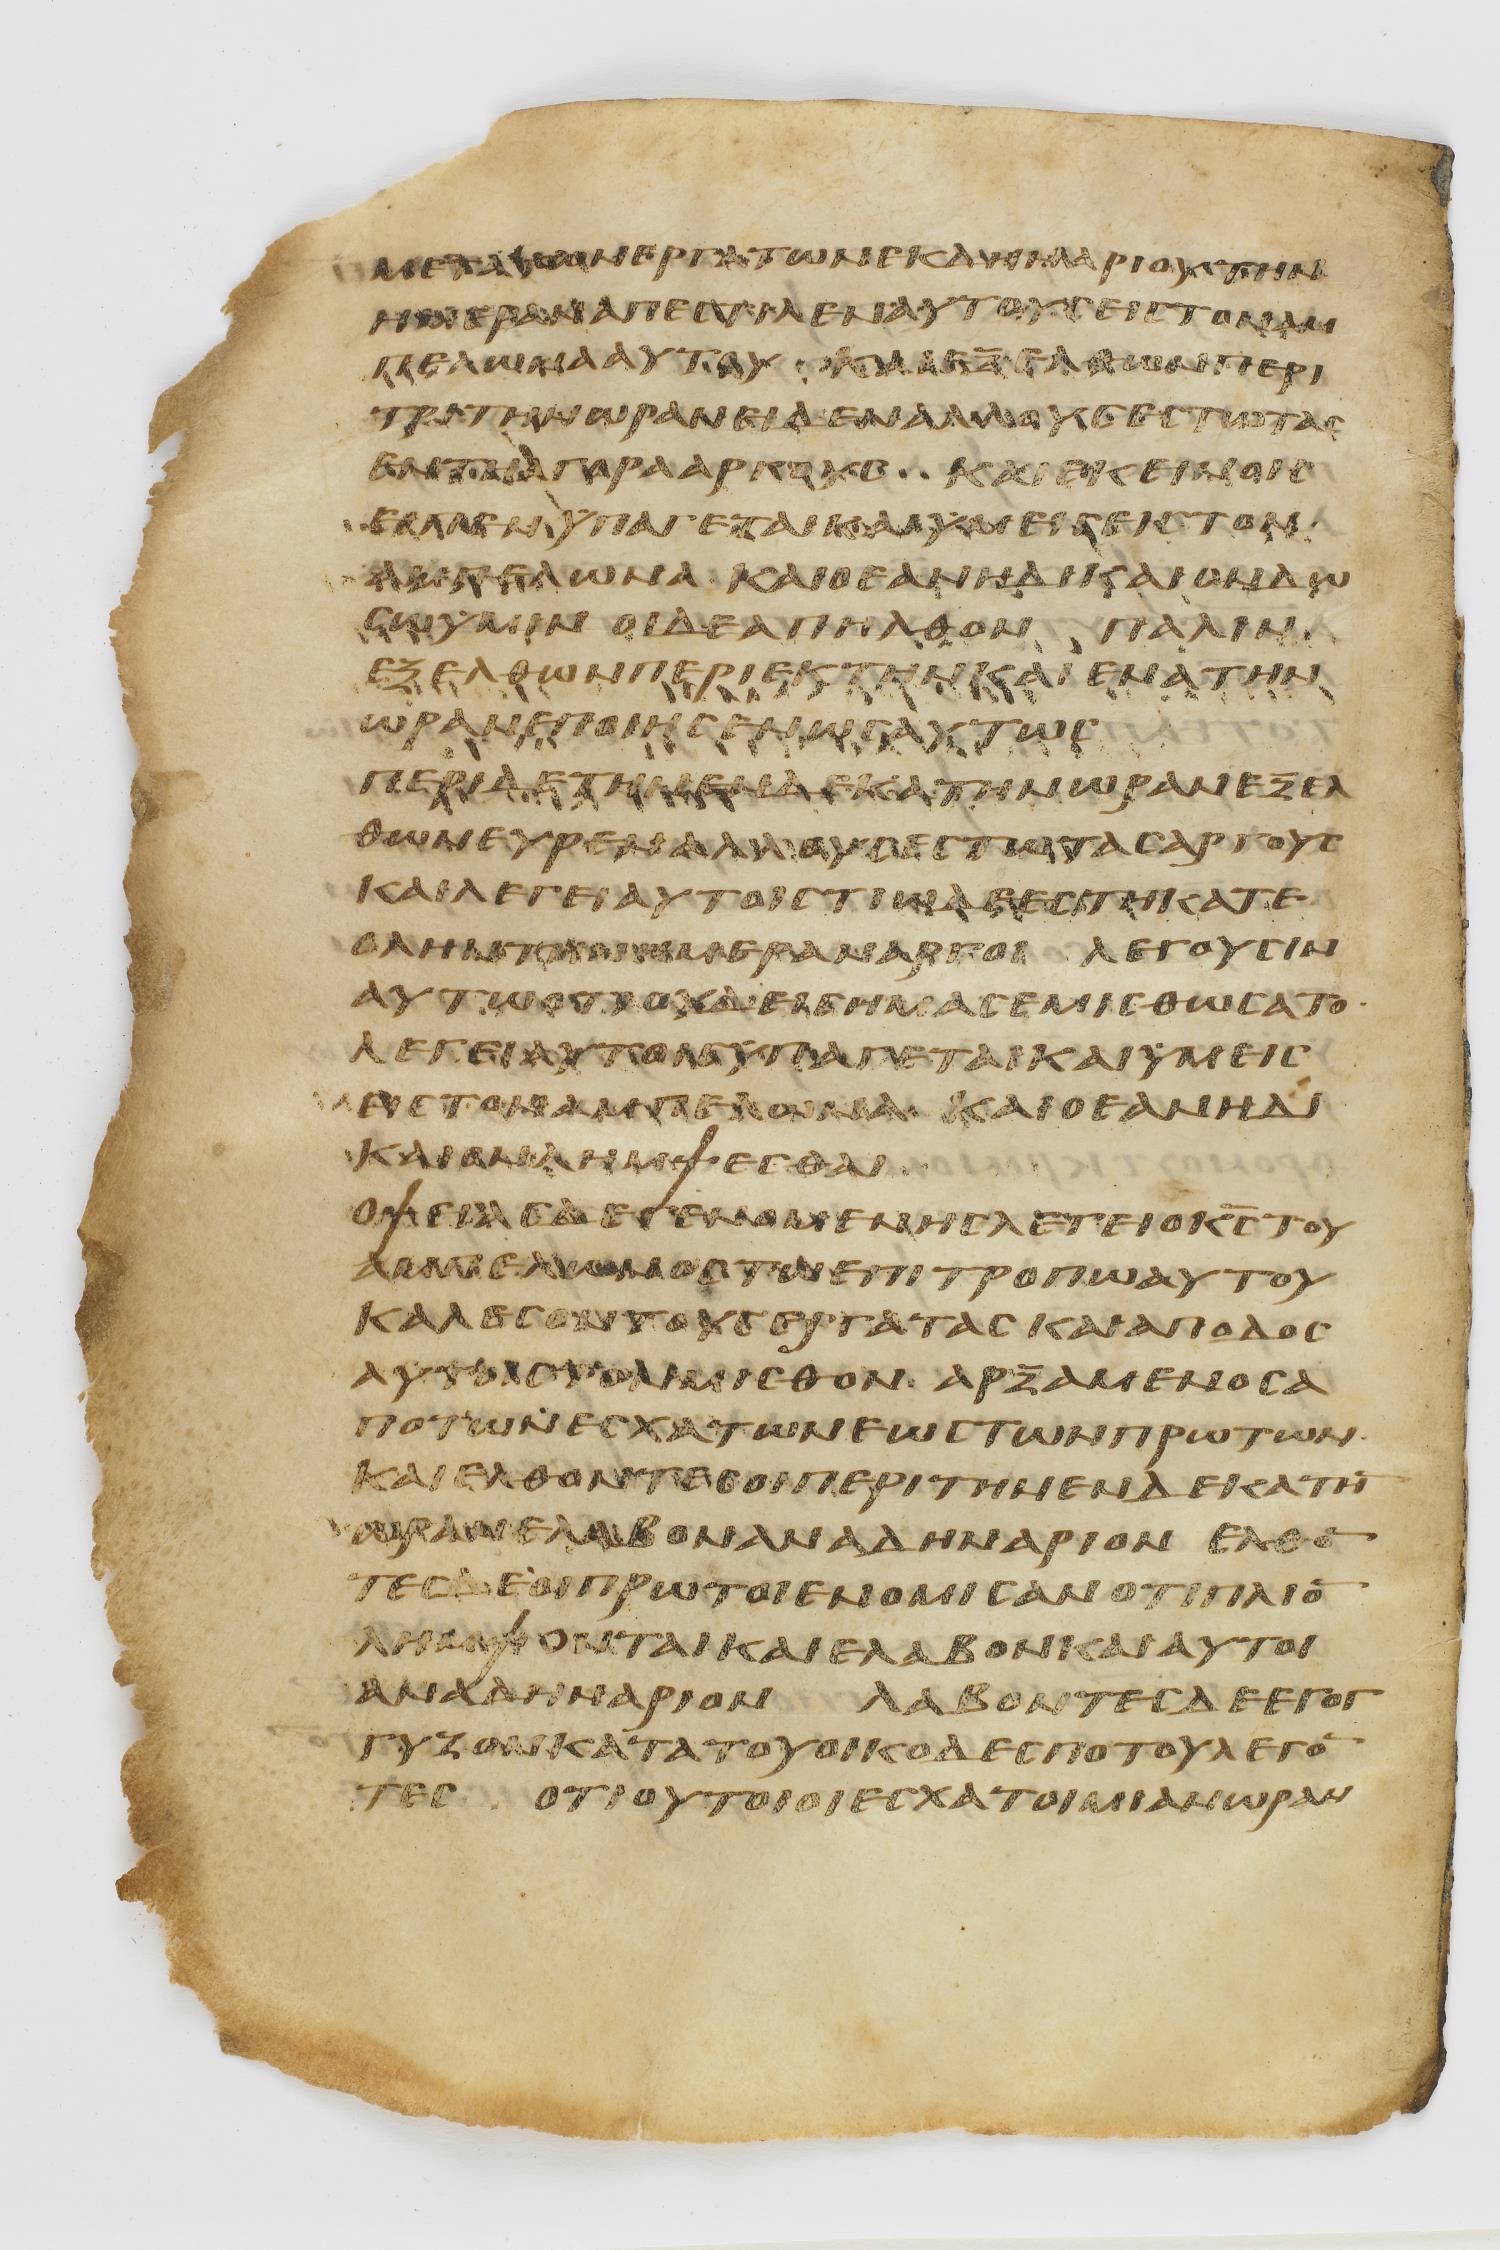 ΜΕΤΑΤΩΝΕΡΓΑΤΩΝΕΚΔΗΝΑΡΙΟΥΤΗΝ
ΗΜΕΡΑΝΑΠΕCΤΙΛΕΝΑΥΤΟΥCΕΙCΤΟΝΑΜ
ΠΕΛΩΝΑΑΥΤΟΥ ΚΑΙΕΞΕΛΘΩΝΠΕΡΙ
ΤΡΙΤΗΝΩΡΑΝΕΙΔΕΝΑΛΛΟΥCΕCΤΩΤΑC
ΕΝΤΗΑΓΟΡΑΑΡΓΟΥC ΚΑΙΕΚΕΙΝΟΙC
ΕΙΠΕΝΥΠΑΓΕΤΑΙΚΑΙΥΜΕΙCΕΙCΤΟΝ
ΑΜΠΕΛΩΝΑ ΚΑΙΟΕΑΝΗΔΙΚΑΙΟΝΔΩ
CΩΥΜΙΝ ΟΙΔΕΑΠΗΛΘΟΝ ΠΑΛΙΝ
ΕΞΕΛΘΩΝΠΕΡΙΕΚΤΗΝΚΑΙΕΝΑΤΗΝ
ΩΡΑΝΕΠΟΙΗCΕΝΩCΑΥΤΩC
ΠΕΡΙΔΕΤΗΝΕΝΔΕΚΑΤΗΝΩΡΑΝΕΞΕΛ
ΘΩΝΕΥΡΕΝΑΛΛΟΥCΕCΤΩΤΑCΑΡΓΟΥC
ΚΑΙΛΕΓΕΙΑΥΤΟΙCΤΙΩΔΕΕCΤΗΚΑΤΕ
ΟΛΗΝΤΗΝΗΜΕΡΑΝΑΡΓΟΙ ΛΕΓΟΥCΙΝ
ΑΥΤΩΟΤΙΟΥΔΕΙCΗΜΑCΕΜΙCΘΩCΑΤΟ
ΛΕΓΕΙΑΥΤΟΙCΥΠΑΓΕΤΑΙΚΑΙΥΜΕΙC
ΕΙCΤΟΝΑΜΠΕΛΩΝΑ ΚΑΙΟΕΑΝΗΔΙ
ΚΑΙΟΝΛΗΜΨΕCΘΑΙ
ΟΨΕΙΑCΔΕΓΕΝΟΜΕΝΗCΛΕΓΕΙΟΚ̅C̅ΤΟΥ
ΑΜΠΕΛΩΝΟCΤΩΕΠΙΤΡΟΠΩΑΥΤΟΥ
ΚΑΛΕCΟΝΤΟΥCΕΡΓΑΤΑCΚΑΙΑΠΟΔΟC
ΑΥΤΟΙCΤΟΝΜΙCΘΟΝ ΑΡΞΑΜΕΝΟCΑ
ΠΟΤΩΝΕCΧΑΤΩΝΕΩCΤΩΝΠΡΩΤΩΝ
ΚΑΙΕΛΘΟΝΤΕCΟΙΠΕΡΙΤΗΝΕΝΔΕΚΑΤΗ̅
ΩΡΑΝΕΛΑΒΟΝΑΝΑΔΗΝΑΡΙΟΝ ΕΛΘΟ̅
ΤΕCΔΕΟΙΠΡΩΤΟΙΕΝΟΜΙCΑΝΟΤΙΠΛΙΟ̅
ΛΗΜΨΟΝΤΑΙΚΑΙΕΛΑΒΟΝΚΑΙΑΥΤΟΙ
ΑΝΑΔΗΝΑΡΙΟΝ ΛΑΒΟΝΤΕCΔΕΕΓΟΓ
ΓΥΖΟΝΚΑΤΑΤΟΥΟΙΚΟΔΕCΠΟΤΟΥΛΕΓΟ̅
ΤΕC ΟΤΙΟΥΤΟΙΟΙΕCΧΑΤΟΙΜΙΑΝΩΡΑΝ